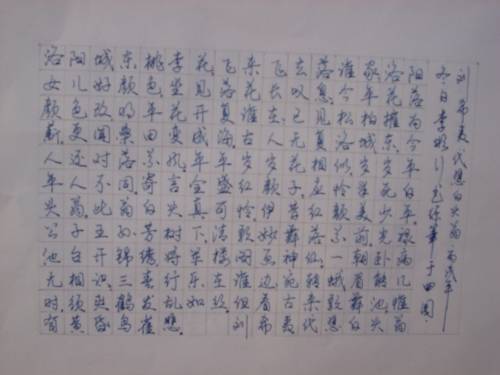 洛阳城东桃李花飞来飞去落谁家洛阳
女儿好颜色坐见落花长叹息今年花落
颜色改明年花开复谁在已见松柏摧为
薪更闻桑田变成海古人无复洛城东今
人还对落花风年年岁岁花相似岁岁
年人不同寄言全盛红颜子应怜半死白
头翁此翁白头真可怜伊昔红颜美少年
公子王孙芳树下清歌妙舞落花前光禄
池台开锦绣将军楼阁画神仙一朝卧病
无相识三春行乐在谁边宛转蛾眉能几
时须臾鹤发乱如丝但看古来歌舞地惟
有黄昏鸟雀悲 刘希夷代悲白头翁
刘希夷代悲白头翁 丙戌年
冬日李 于田园